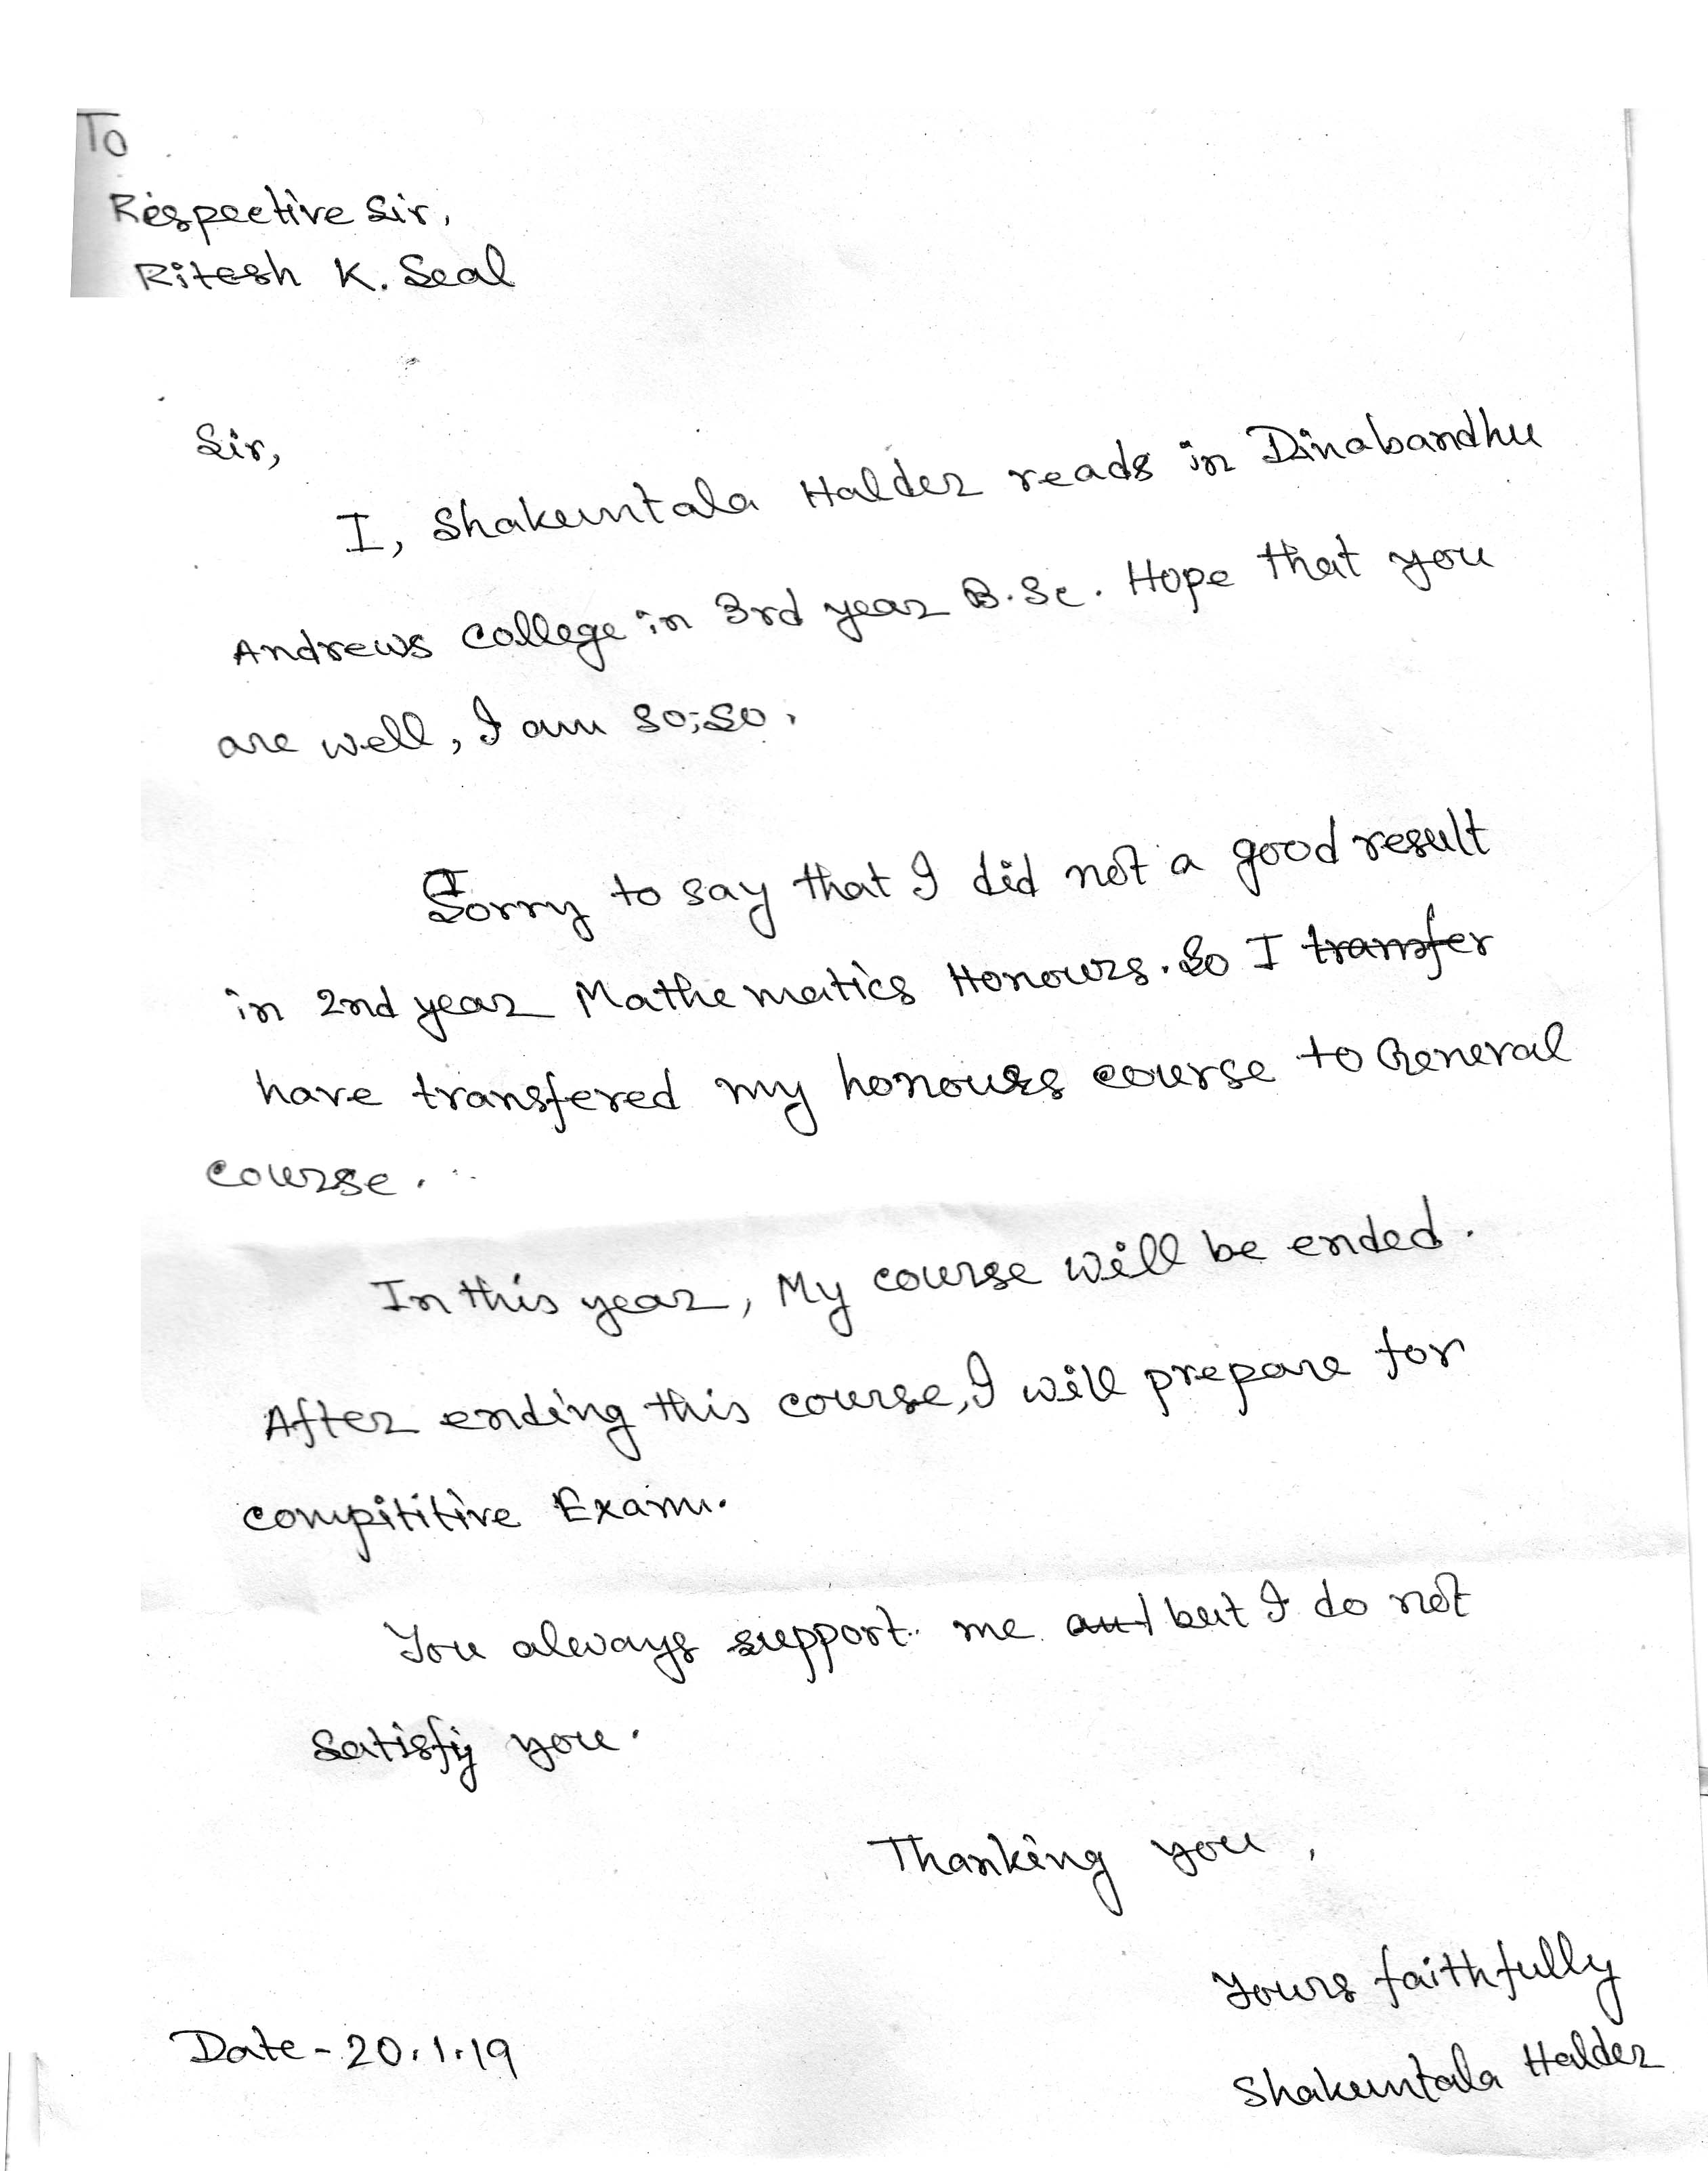 To
Respective Sir,
Ritesh K. Seal
Sir,
I, Shakuntala Halder reads in Dinabandhu
Andrews College in 3rd year B.Sc. Hope that you
are well, I am so;so.
Sorry to say that I did not a good result
in 2nd year Mathematics Honours. So I transfer
have transfered my honours course to General
course.
In this year, My course will be ended.
After ending this course, I will prepare for
compititive Exam.
You always support me but I do not
satisfy you.
Thanking you,
Yours faithfully
Date - 20.1.19
Shakuntala Halder